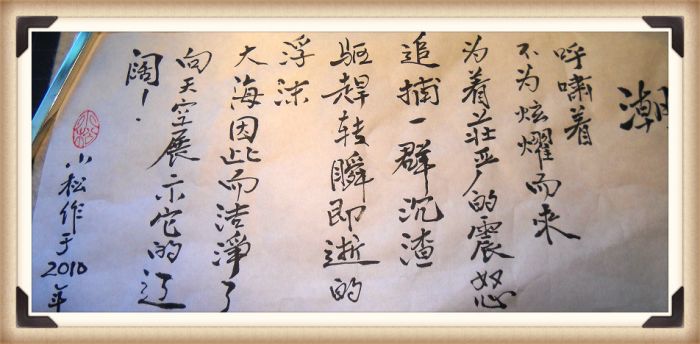 潮
呼啸着
不为炫耀而来
为着庄严的震怒
追捕一群沉渣
驱赶转瞬即逝的
浮沫
大海因此而洁淨了
向天空展示它的辽
阔！
小松作于2010年